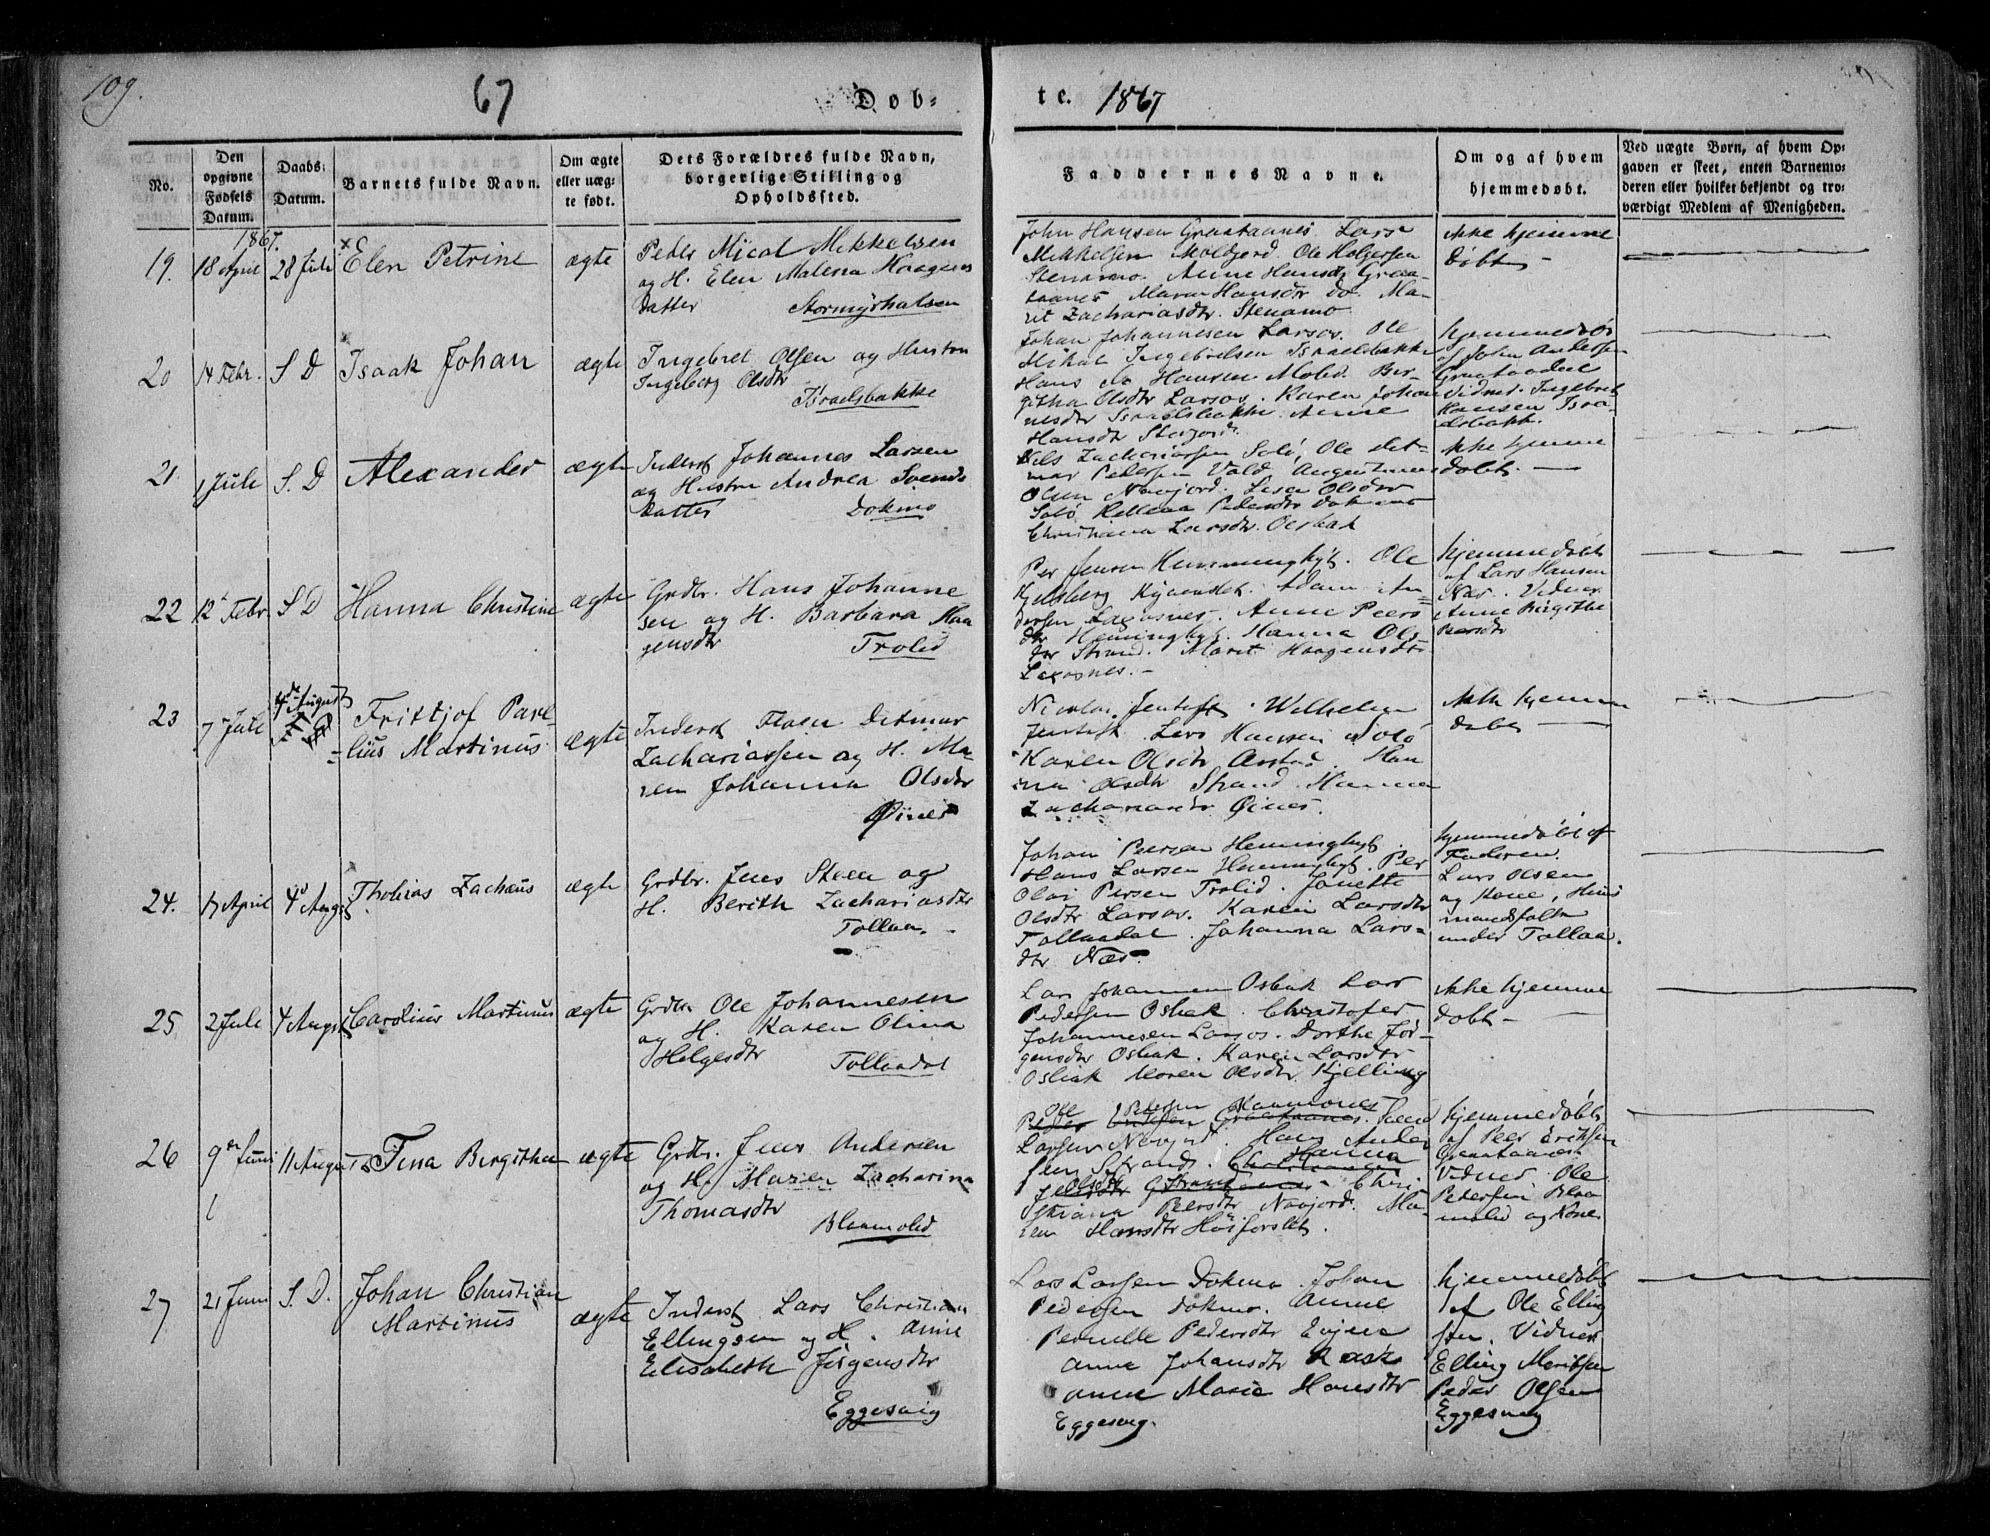 109.
67
Døb-
te. 1867
No.
Den opgivne Fødsels Datum.
Daabs-Datum.
Barnets fulde Navn.
Om ægte eller uæg-te født.
Dets Forældres fulde Navn, borgerlige Stilling og Opholdssted.
Faddernes Navne.
Om og af hvem hjemmedøbt.
Ved uægte Børn, af hvem Op-
gaven er skeet, enten Barnemo-
deren eller hvilket bekjendt og tro-
værdigt Medlem af Menigheden.
1867.
19. 18 April 28 Juli Elen Petrine ægte
Peder Mical Mikkelsen
og H. Elen Malena Haagens
datter Stormyrhalsen
John Hansen Graataanes Lars
Mikkelsen Molbjord Ole Holgersen
Stenamo. Anne Hansdtr Graa-
taanes Maren Hansdtr do. Ma-
rit Zachariasdtr. Stenamo
ikke hjemme
døbt
20 14 Febr. S D Isaak Johan ægte
Ingebret Olsen og Hustru
Ingeborg Olsdtr
Israelsbakke
Johan Johannesen Larsos. Ole
Mikal Ingebretsen Israelsbakke
Hans Hansen Molid. Ber-
githa Olsdtr Larsos. Karen Johan
nesdtr Israelsbakke. Anne
Hansdtr
hjemmedøbt
af John Andersen
Graataadne
Vidner Ingebret
Hansen Isra-
elsbakk.
21 1 Juli S. D Alexander ægte
Inderst Johannes Larsen
og Hustru Andrea Svends
datter Dokmo
Nils Zachariassen Solø, Ole Det-
mar Pedersen Vold Augustinus
Olsen Navjord. Lisa Olsdtr
Solø Hellena Pedersdtr Dokmo
Christiana Larsdtr. Osbak
ikke hjemme
døbt.
22 12 Febr. S D Hanna Christine ægte
Grdbr. Hans Johanne
sen og H. Barbara Haa
gensdtr Trolid
Per Jensen Hemminghyt. Ole
Adam An-
dersen Anne Peers-
dtr Hemminghyt. Hanna Ols-
dtr Strand. Marit Haagensdtr
hjemmedøbt
af Lars Hansen
Næs. Vidner
Anne Birgithe
Peersdtr
23 7 Juli 4de August Frittjof Pare-
lius Martinus ægte
Inderst Floen Ditmar
Zachariassen og H. Ma-
ren Johanna Olsdtr
Øines
Nicolai Jentoft. Wilhelm
Jentoft Lars Hansen Solø
Karen Olsdtr Arstad. Han
na Olsdtr Strand Hanna
Zachariasdtr Øines.
ikke hjemme
døbt
24. 17 April 4 Augst Thobias Zachæus ægte
Grdbr. Jens Steen og
H. Berith Zachariasdtr
Tollaa.
Johan Peersen Hemminghyt.
Hans Larsen Hemminghyt. Per
Olai Persen Trolid. Jonette
Olsdtr Larsos. Karen Larsdtr
Tollaadal. Johanna Lars-
dtr Næs.
hjemmedøbt af
Faderen.
Lars Olsen
og Kone, Huus
mandsfolk
under Tollaa.
25 2 Juli 4 Augst Carolius Martinus ægte
Grdbr. Ole Johannesen
og H. Karen Olina
Helgesdtr Tollaadal
Lars Johannesen Osbak Lars
Pedersen Osbak. Christofer
Johannesen Larsos. Dorthe Jør-
gensdtr Osbak. Karen Larsdtr
Osbak Maren Olsdtr Kjelling
ikke hjemme
døbt
26 9de Juni 11 August Tina Birgitha ægte
Grdbr. Jens Andersen
og H. Maren Zacharina
Thomasdtr
Blaamolid
Ole Pedersen
Peder Graataanes.
Larsen Navjord. Hans Ander
sen Strand. Hanna
Olsdtr Strand Chri-
stiana Peersdtr Navjord. Ma-
ren Hansdtr Høiforslet.
hjemmedøbt
af Peer Eriksen
Graataanes
Vidner Ole
Pedersen Blaa
molid og Kone
27 21 Juni S. D. Johan Christian
Martinus ægte
Inderst Lars Christian
Ellingsen og H. Anne
Elisabeth Jørgensdtr
Eggesvig
Lars Larsen Dokmo Johan
Pedersen Dokmo. Anne
Pernille Pedersdtr Evjen
Anne Johansdtr
Anne Marie Hansdtr
Eggesvig.
hjemmedøbt
af Ole Elling
sen. Vidner
Elling Meritsen
Peder Olsen
Eggesvig